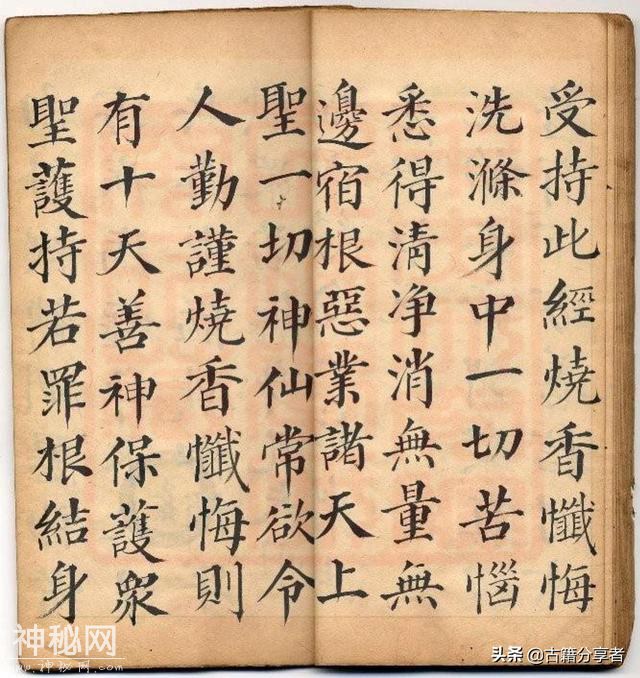 受持此經燒香懺悔
洗滌身中一切苦惱
悉得清净消無量無
邊宿根惡業諸天上
聖一切神仙常欲令
人勤謹燒香懺悔則
有十天善神保護衆
聖護持若罪根結身
神秘网
www.神秘网.com
头条 @古籍分享者